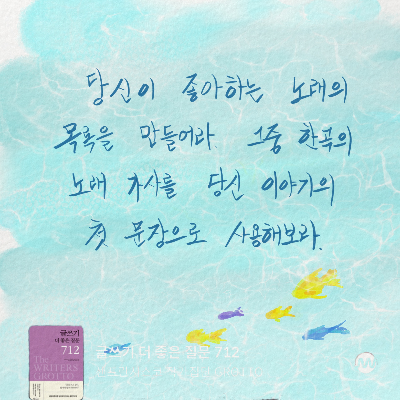 당신이 좋아하는 노래의
목록을 만들어라 그중 한곡의
노래 가사를 당신 이야기의
첫 문장으로 사용해보라.
글쓰기
더 좋은 질문
712
The
WRITERS
GROTTO
글쓰기 더 좋은 질문 712